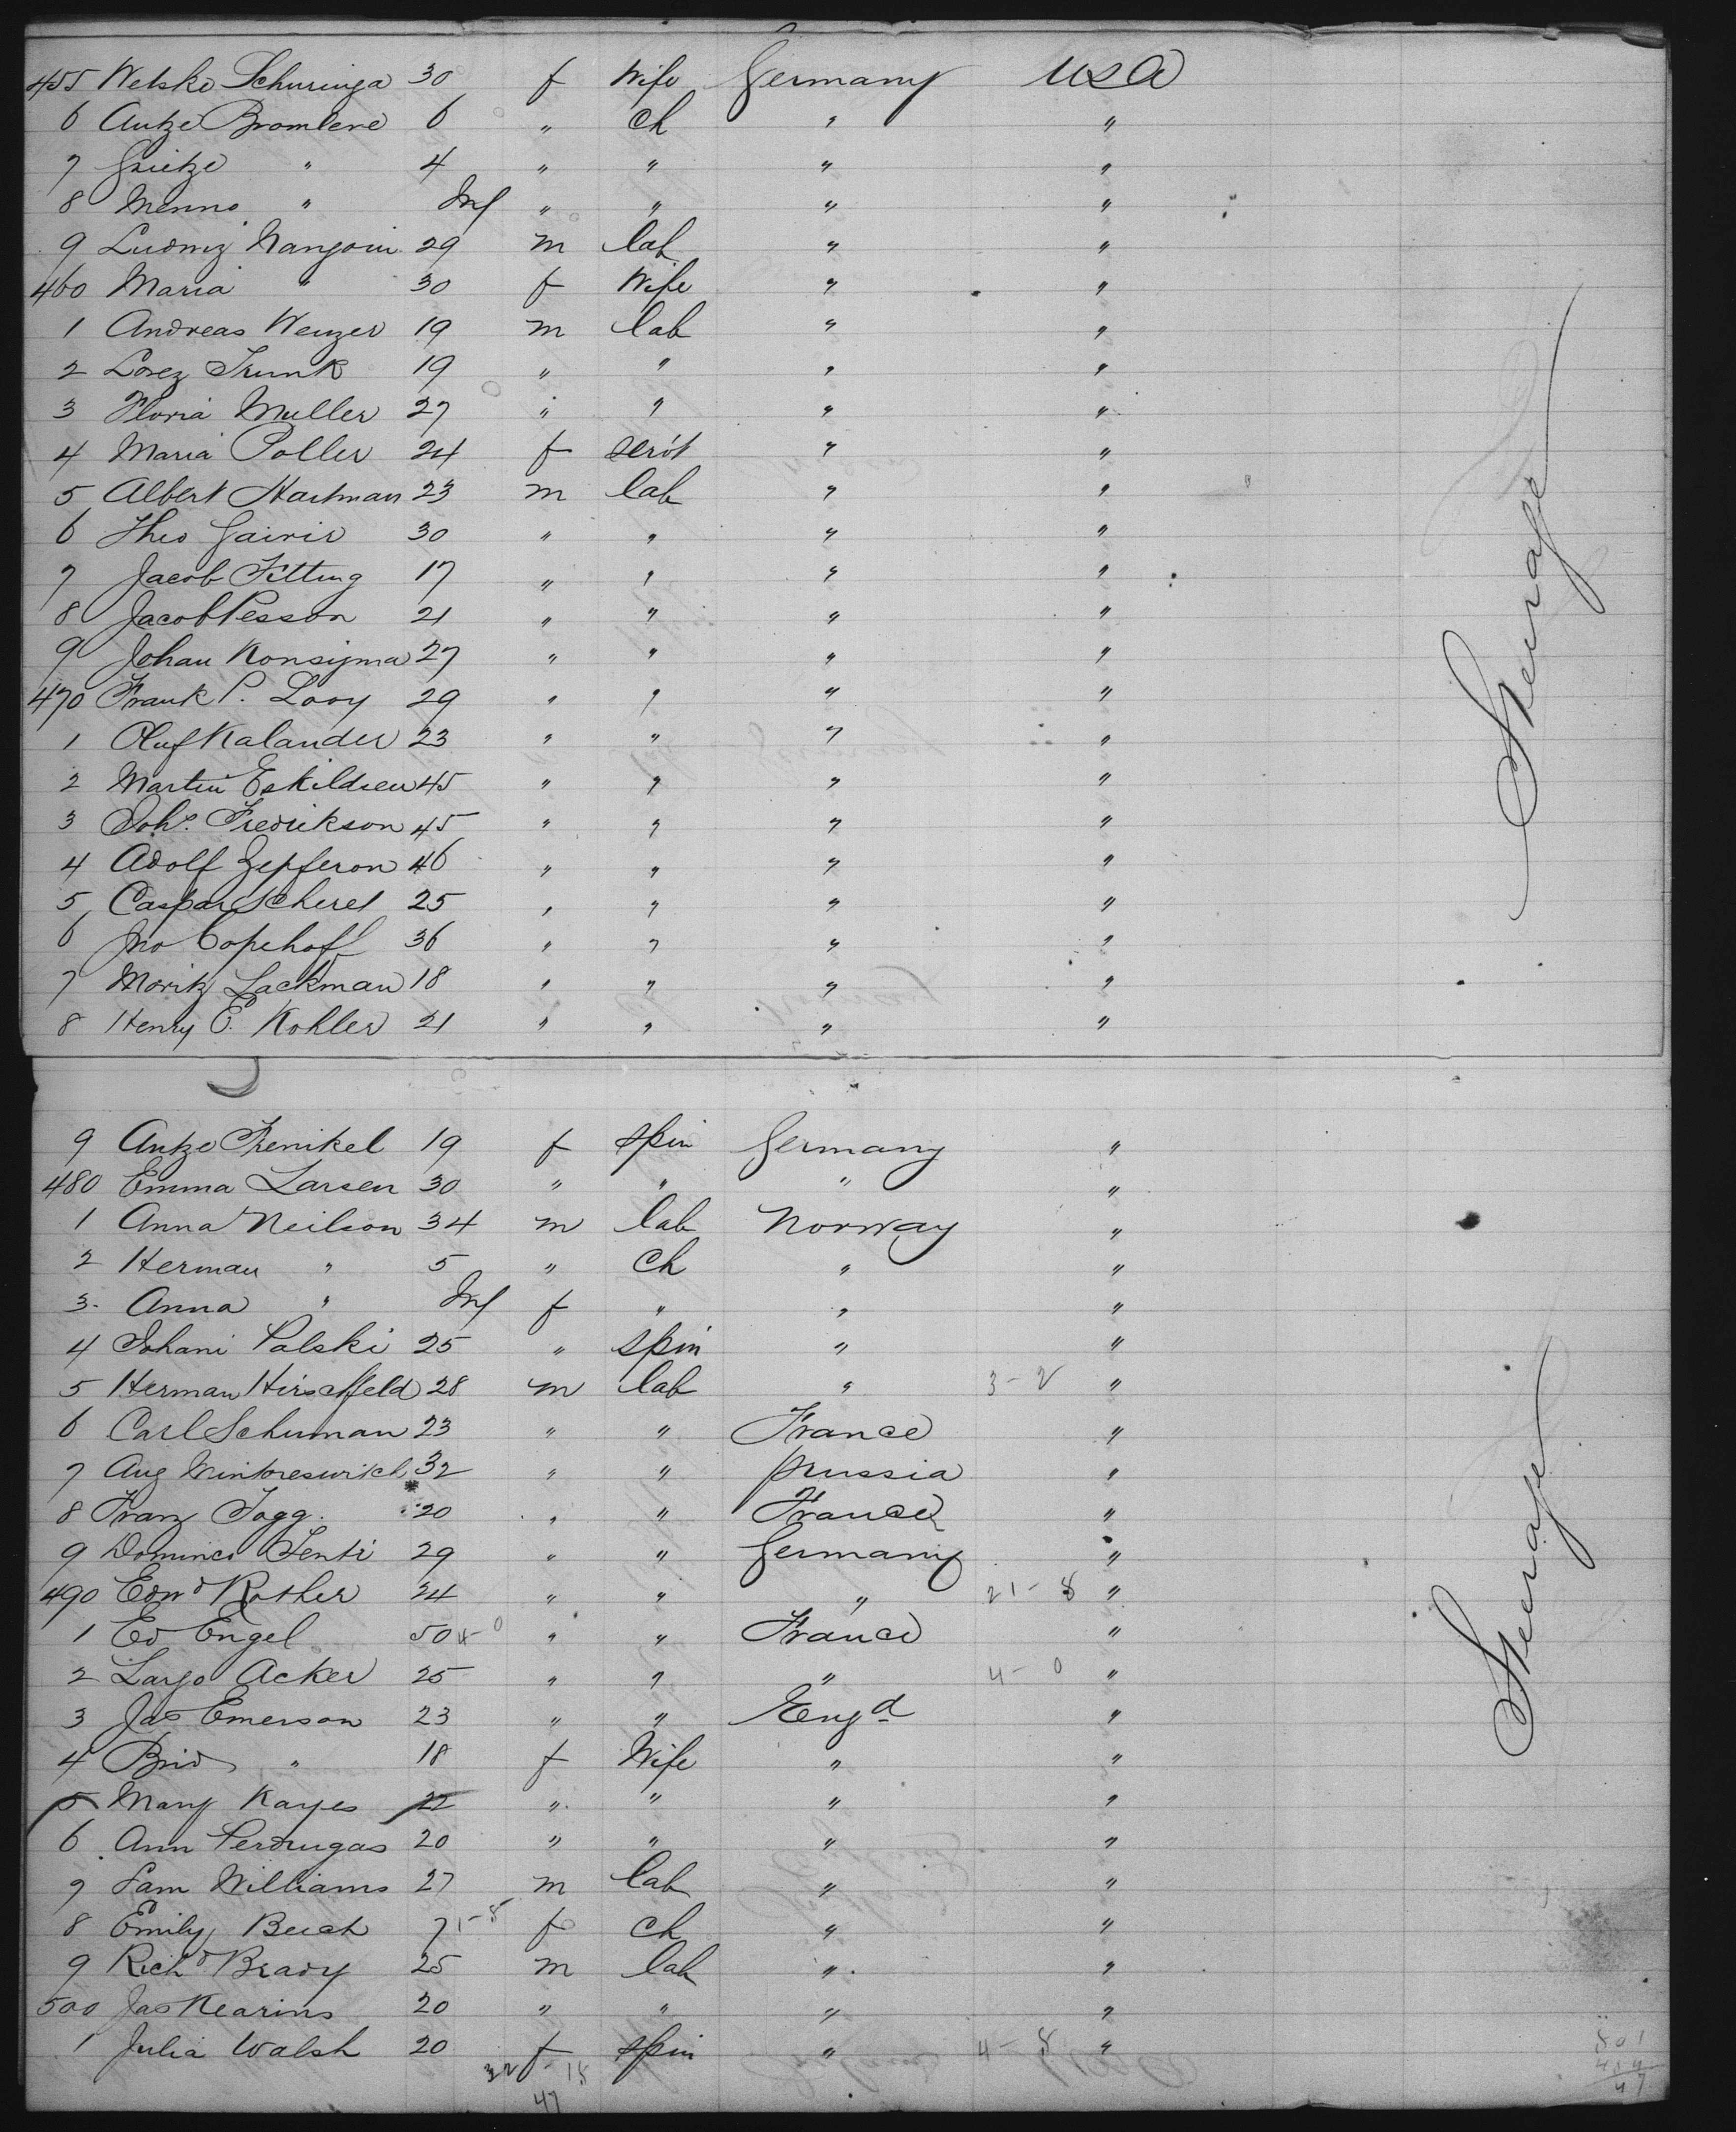 455 Wetske Schuringa 30 f Wife Germany USA
6 Antze Bromlere 6 " ch " "
7 Grietze " 4 " " " "
8 Menno " Inf " " " "
9 Ludwig 29 m lab " "
460 Maria " 30 f Wife " "
1 Andreas Wenzer 19 m lab " "
2 Lorez Trunk 19 " " " "
3 Floria Muller 27 " " " "
4 Maria Poller 24 f serv't " "
5 Albert Hartman 23 m lab " "
6 Theo Gairir 30 " " " "
7 Jacob Fitting 17 " " " "
8 Jacob Pesson 21 " " " "
9 Johan Konsijma 27 " " " "
470 Frank P. Looy 29 " " " "
1 Oluf Kalander 23 " " " "
2 Martin Eskildsen 45 " " " "
3 Johs. Fredrikson 45 " " " "
4 Adolf Zepferon 46 " " " "
5 Caspar Scherel 25 " " " "
6 Jno Copehoff 36 " " " "
7 Moritz Lackman 18 " " " "
8 Henry E. Kohler 21 " " " "
Steerage
9 Antze Frenikel 19 f spin Germany "
480 Emma Larsen 30 " " " "
1 Anna Neilson 34 m lab Norway "
2 Herman " 5 " ch " "
3. Anna " Inf f " " "
4 Johani Palski 25 " spin " "
5 Herman Hirschfeld 28 m lab " 3-2 "
6 Carl Schuman 23 " " France "
7 Aug 32 " " Prussia "
8 Franz Togg. 20 " " France "
9 Dominco Tenti 29 " " Germany "
490 Edwd Rother 24 " " " 21-8 "
1 Ed Engel 50 4-0 " " France "
2 Largo Acker 25 " " " 4-0 "
3 Jas Emerson 23 " " Engd "
4 Brid " 18 f Wife " "
5 Mary Kayes 22 " " " "
6 Ann Perdrugas 20 " " " "
7 Sam Williams 27 m lab " "
8 Emily Beech 7 1-8 f ch " "
9 Richd Brady 25 m lab " "
500 Jas Kearins 20 " " " "
1 Julia Walsh 20 f spin " 4-8 "
32 - 15
47
Steerage
501
454
47